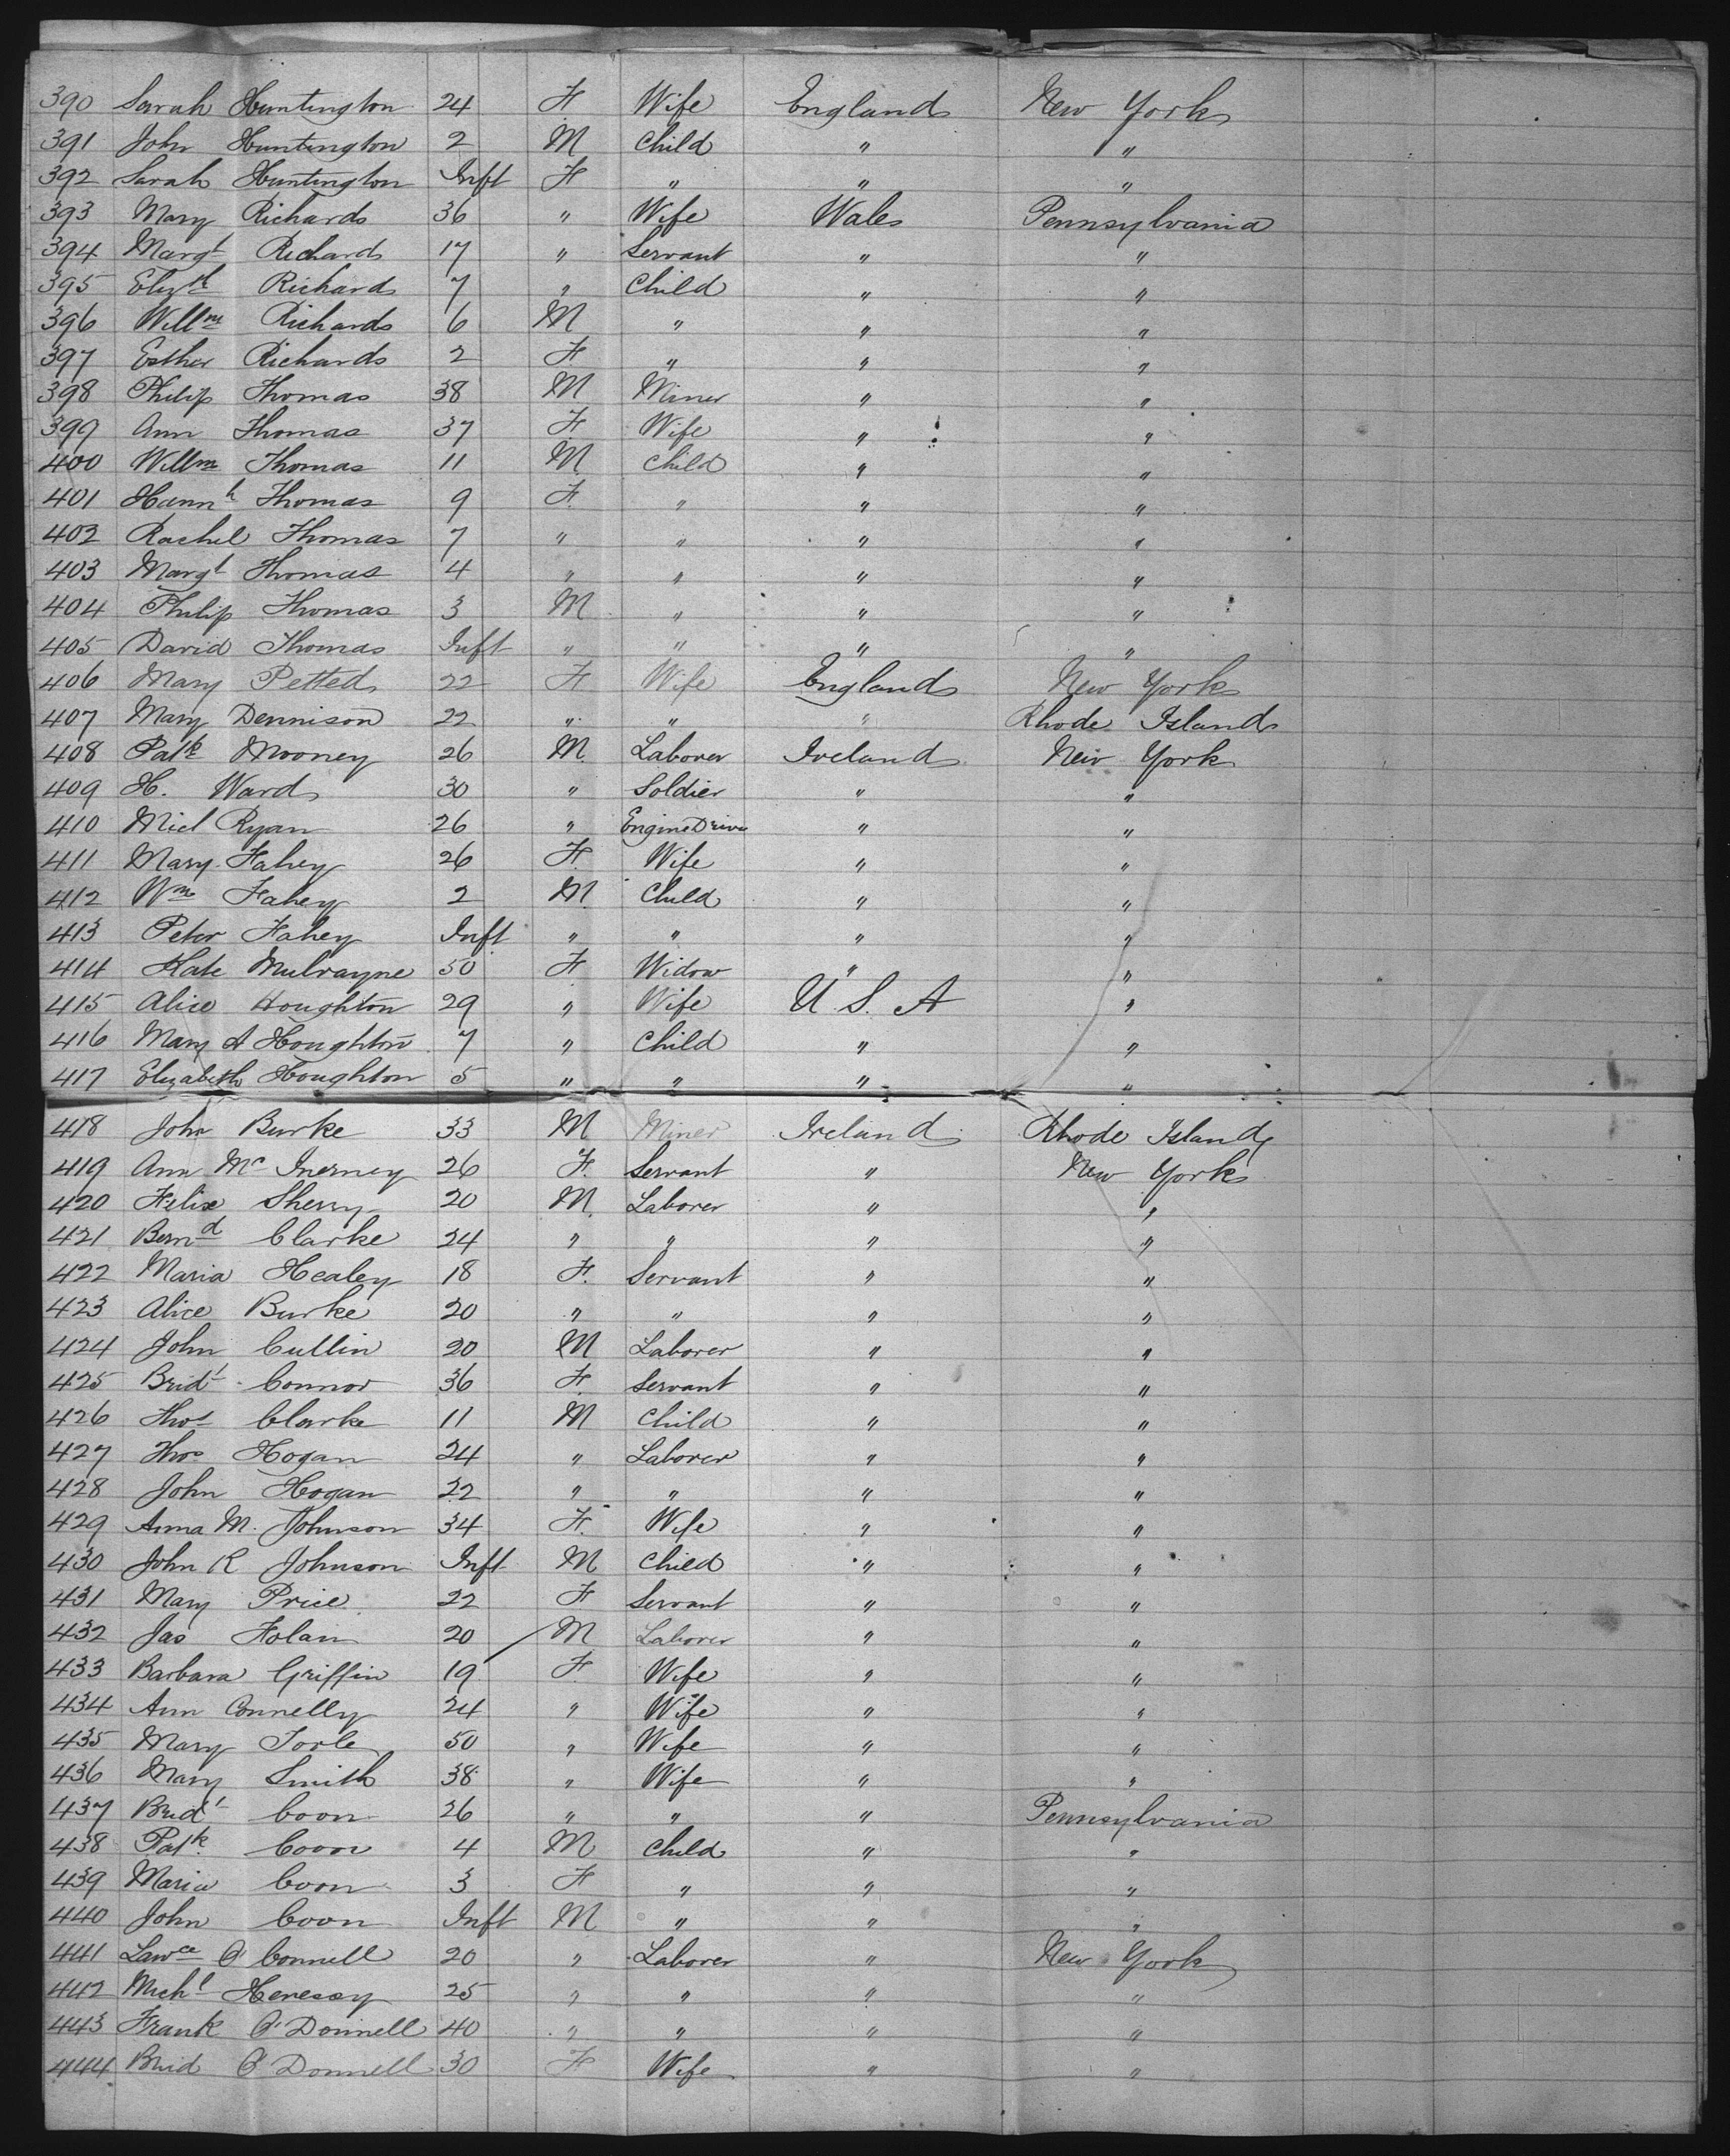 390 Sarah Huntington 24 F Wife England New York
391 John Huntington 2 M Child " "
392 Sarah Huntington Inft F " " "
393 Mary Richards 36 " Wife Wales Pennsylvania
394 Margt Richards 17 " Servant " "
395 Elizth Richards 7 " Child " "
396 Willm Richards 6 M " " "
397 Esther Richards 2 F " " "
398 Philip Thomas 38 M Miner " "
399 Ann Thomas 37 F Wife " "
400 Willm Thomas 11 M Child " "
401 Hannh Thomas 9 F. " " "
402 Rachel Thomas 7 " " " "
403 Margt Thomas 4 " " " "
404 Philip Thomas 3 M " " "
405 David Thomas Inft " " " "
406 Mary Petted 22 F Wife England New York
407 Mary Dennison 22 " " " Rhode Island
408 Patk Mooney 26 M. Laborer Ireland New York
409 H. Ward 30 " Soldier " "
410 Micl Ryan 26 " Engine Driver " "
411 Mary Fahey 26 F. Wife " "
412 Wm Fahey 2 M. Child " "
413 Peter Fahey Inft " " " "
414 Kate Mulrayne 50 F Widow " "
415 Alice Houghton 29 " Wife U. S. A "
416 Mary A Houghton 7 " Child " "
417 Elizabeth Houghton 5 " " " "
418 John Burke 33 M Miner Ireland Rhode Island
419 Ann Mc Inerney 26 F. Servant " New York
420 Felix Sherry 20 M. Laborer " "
421 Bernd Clarke 24 " " " "
422 Maria Healey 18 F. Servant " "
423 Alice Burke 20 " " " "
424 John Cullin 20 M Laborer " "
425 Bridt Connor 36 F. Servant " "
426 Thos Clarke 11 M Child " "
427 Thos Hogan 24 " Laborer " "
428 John Hogan 22 " " " "
429 Anna M. Johnson 34 F. Wife " "
430 John R Johnson Inft M Child " "
431 Mary Price 22 F Servant " "
432 Jas Folan 20 M Laborer " "
433 Barbara Griffin 19 F Wife " "
434 Ann Connelly 24 " Wife " "
435 Mary Toole 50 " Wife " "
436 Mary Smith 38 " Wife " "
437 Bridt Coon 26 " " " Pennsylvania
438 Patk Coon 4 M Child " "
439 Maria Coon 3 F " " "
440 John Coon Inft M " " "
441 Lawce O'Connell 20 " Laborer " New York
442 Michl Henessy 25 " " " "
443 Frank O'Donnell 40 " " " "
444 Brid O'Donnell 30 F Wife " "